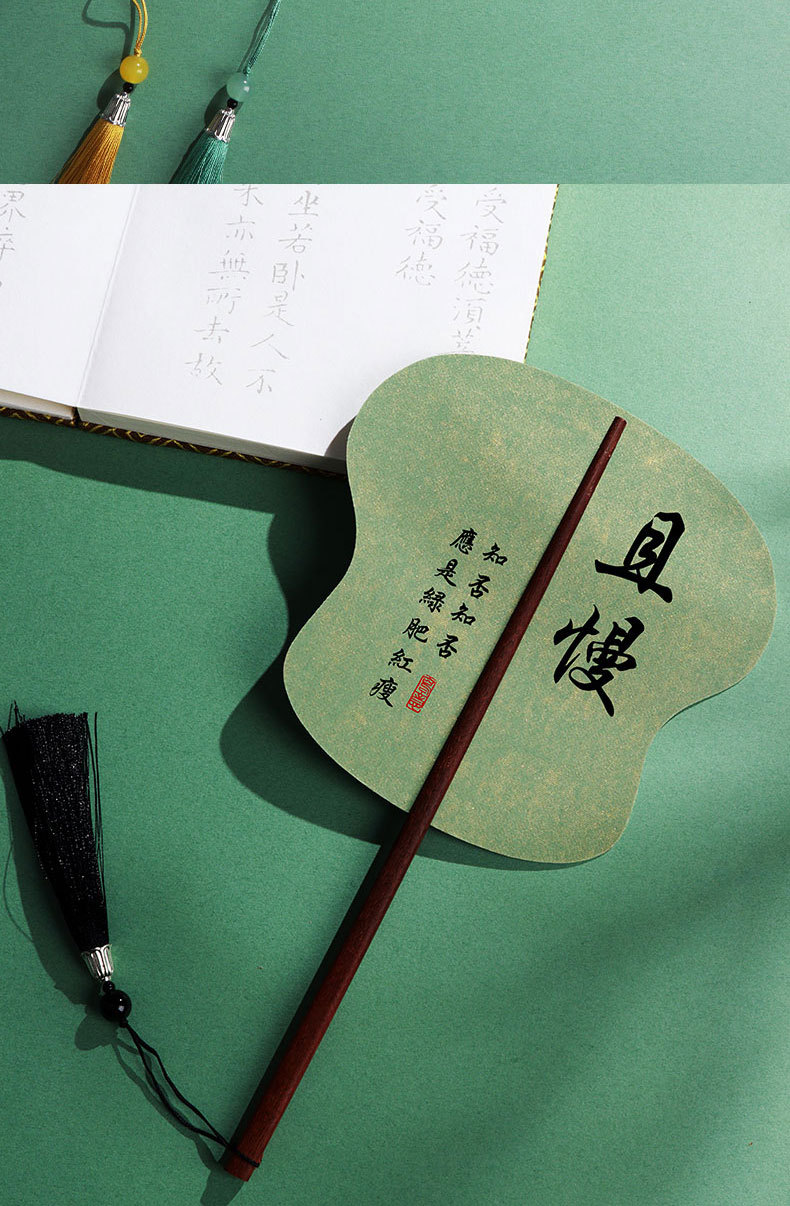 受福德湏菩
受福德
坐若卧是人不
来亦無所去故
界碎
且慢
知否知否
應是綠肥紅瘦